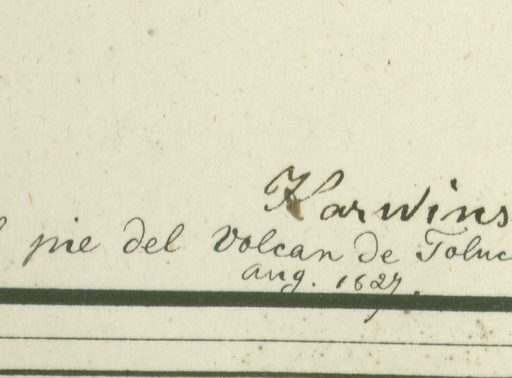 Karwins
l pie del Volcan de Toluc
Aug. 1827.